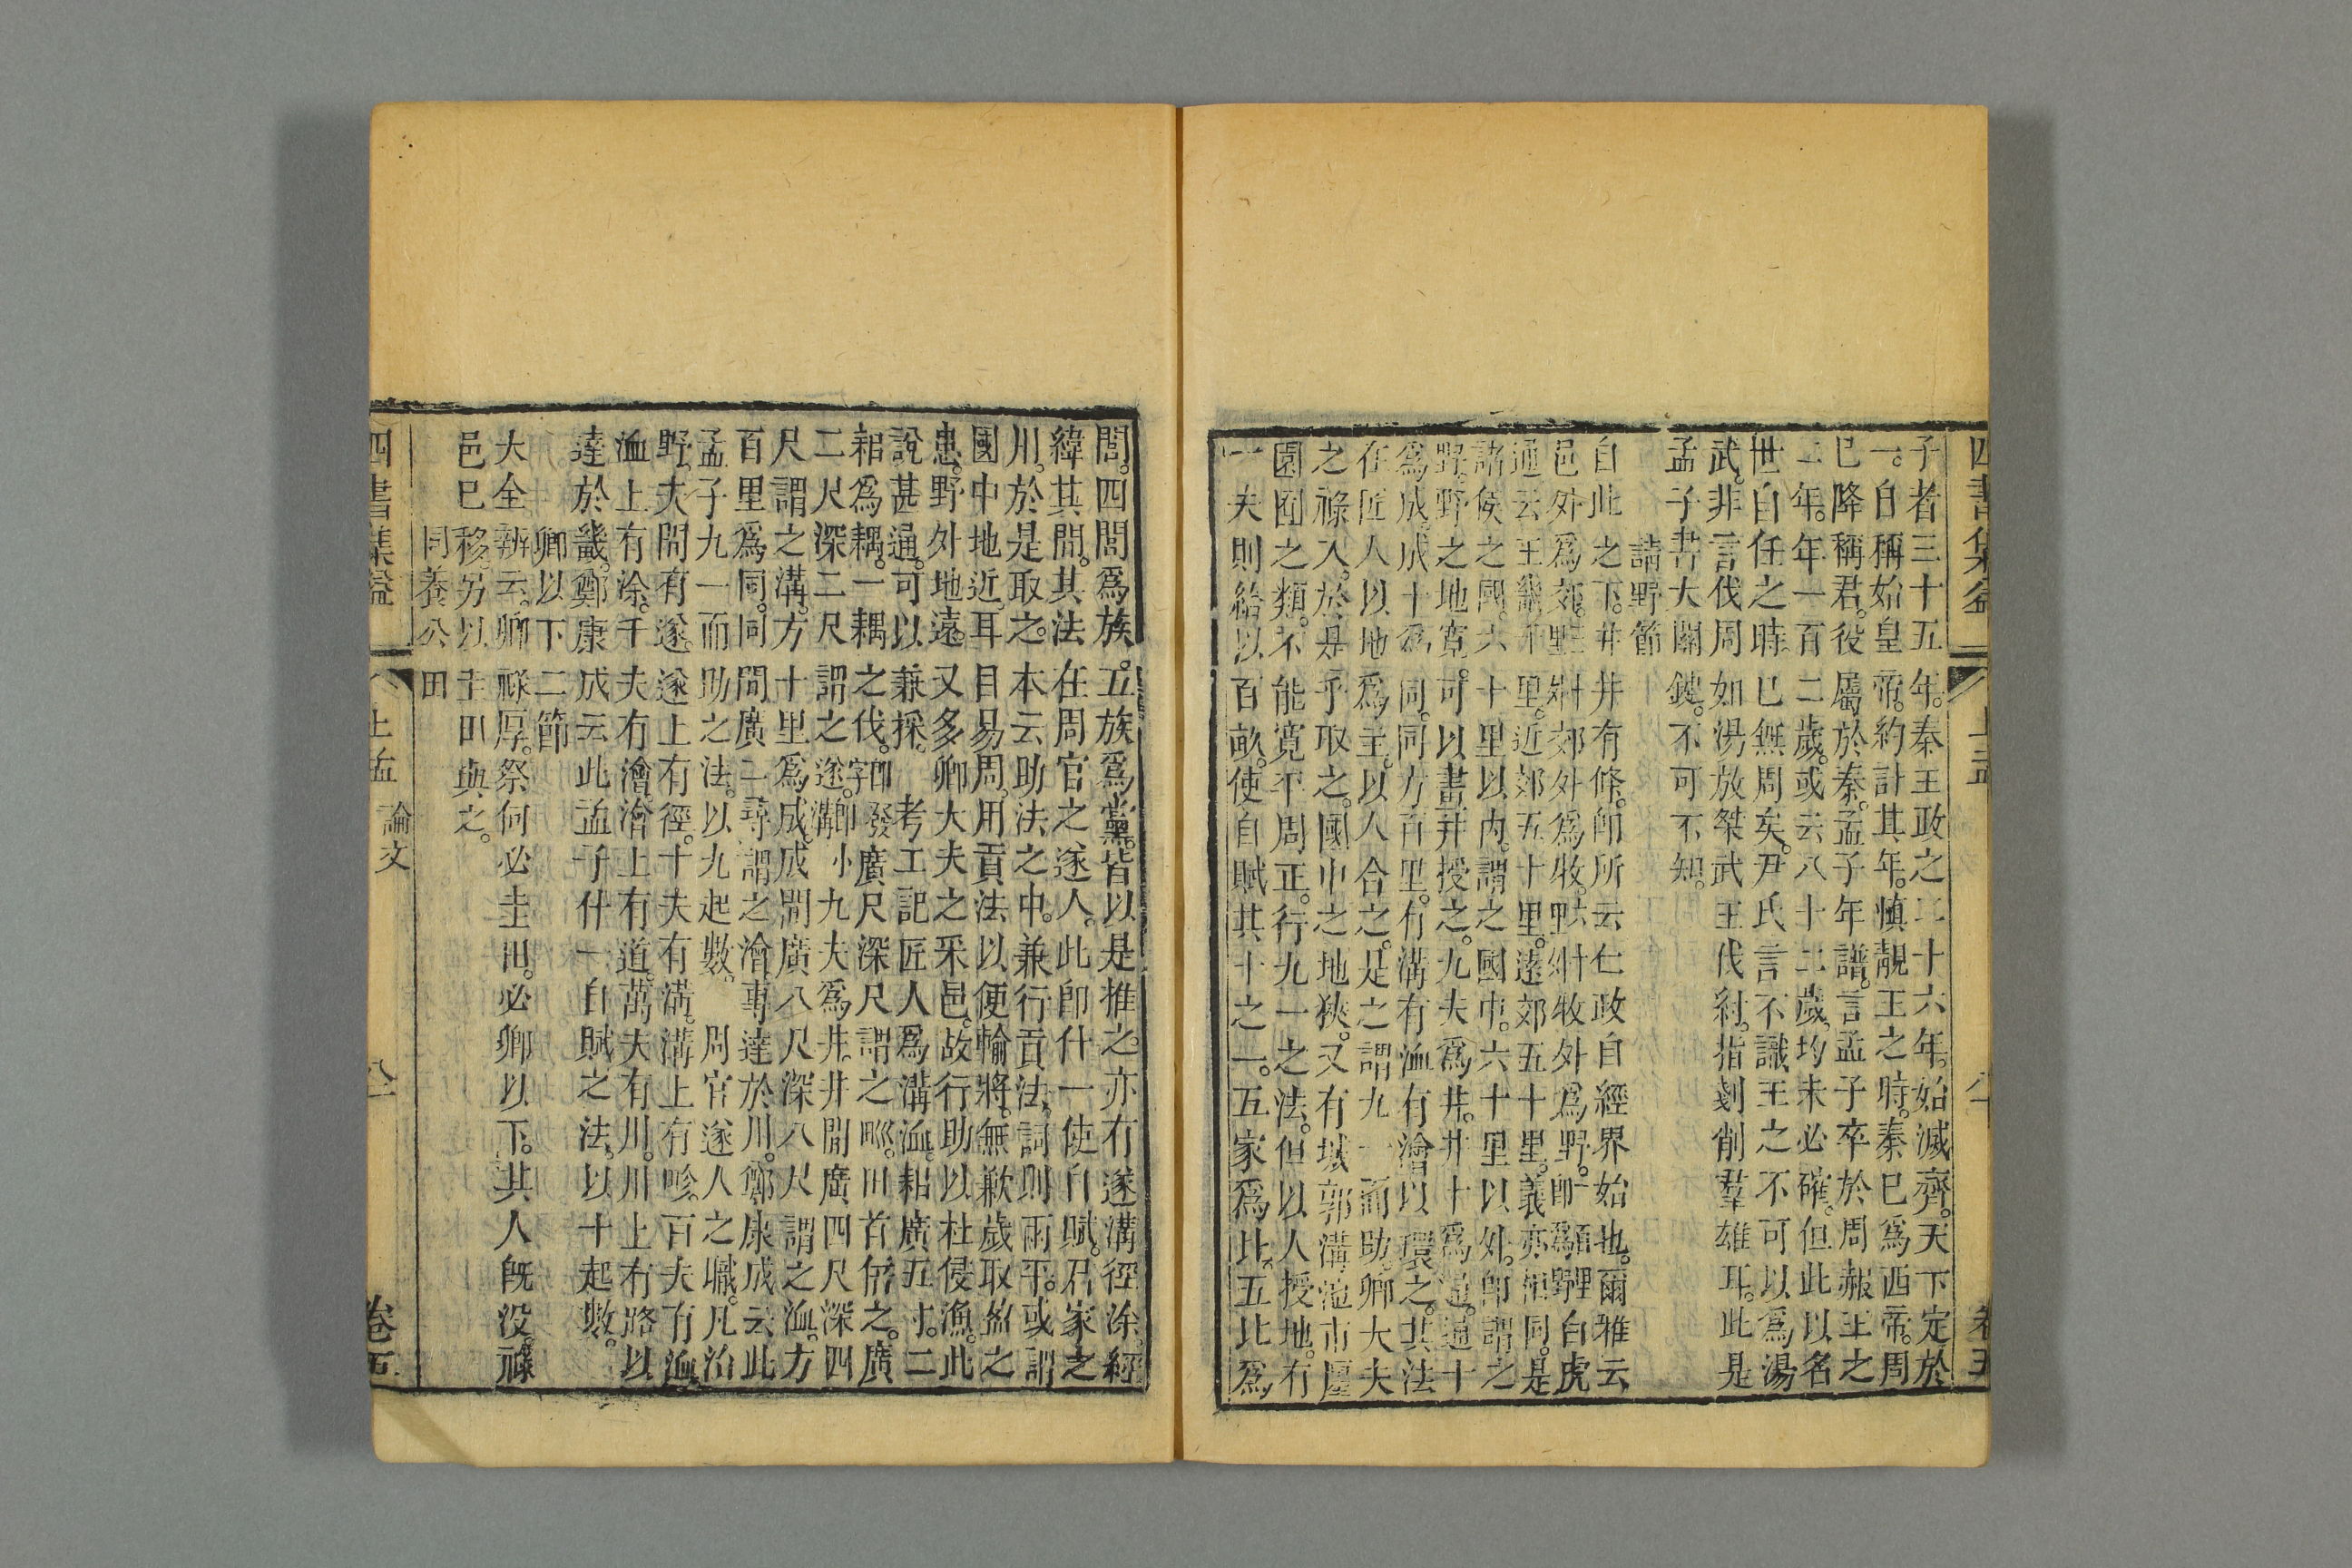 子者三十五年。秦王政之二十六年。始滅齊。天下定於
一。自稱始皇帝。約計其年。慎靚王之時。秦已為西帝。周
已降稱君。役屬於秦。孟子年譜。言孟子卒於周赧王之
二年。年一百二歲。或云八十二歲。均未必確。但此以名
世自任之時。已無周矣。尹氏言不識王之不可以為湯
武。非言伐周如湯放桀武王伐紂。指剗削羣雄耳。此是
孟子書大關鍵。不可不知。
請野節
自此之下。井井有條。卽所云仁政自經界始也。爾雅云
邑外為郊。野郊外為牧。牧外為野。白虎
通云王畿千里。近郊五十里。遠郊五十里。義亦相同。是
諸侯之國。六十里以內。謂之國中。六十里以外。卽謂之
野。野之地寬。可以畫井授之。九夫為井。井十為通。通十
為成。成十為同。同方百里。有溝有洫有澮以環之。其法
在匠人以地為主。以人合之。是之謂九一而助。卿大夫
之祿入。於是乎取之。國中之地狹。又有城郭溝池市廛
園囿之類。不能寬平周正。行九一之法。但以人授地。有
一夫則給以百畝。使自賦其十之一。五家為比。五比為
閭。四閭為族。五族為黨。皆以是推之。亦有遂溝徑涂。經
緯其間。其法在周官之遂人。此卽什一使自賦。君家之
川。於是取之。本云助法之中。兼行貢法。詞則兩平。或謂
國中地近。耳目易周。用貢法以便輸將。無歉歲取盈之
患。野外地遠。又多卿大夫之采邑。故行助以杜侵漁。此
說甚通。可以兼採。　考工記匠人為溝洫。耜廣五寸。二
耜為耦。一耦之伐。卽發字廣尺深尺謂之畎。田首倍之。廣
二尺深二尺謂之遂。卽小溝九夫為井。井間廣四尺深四
尺謂之溝。方十里為成。成間廣八尺深八尺謂之洫。方
百里為同。同間廣二尋謂之澮。專達於川。鄭康成云此
孟子九一而助之法。以九起數。　周官遂人之職。凡治
野。夫間有遂。遂上有徑。十夫有溝。溝上有畛。百夫有洫
洫上有涂。千夫有澮。澮上有道。萬夫有川。川上有路。以
達於畿。鄭康成云此孟子什一自賦之法。以十起數。
卿以下二節
大全辨云。卿祿厚。祭何必圭田。必卿以下。其人既沒。祿
邑已移。另以圭田與之。
同養公田
四書集益　上孟　論文　八一　卷五